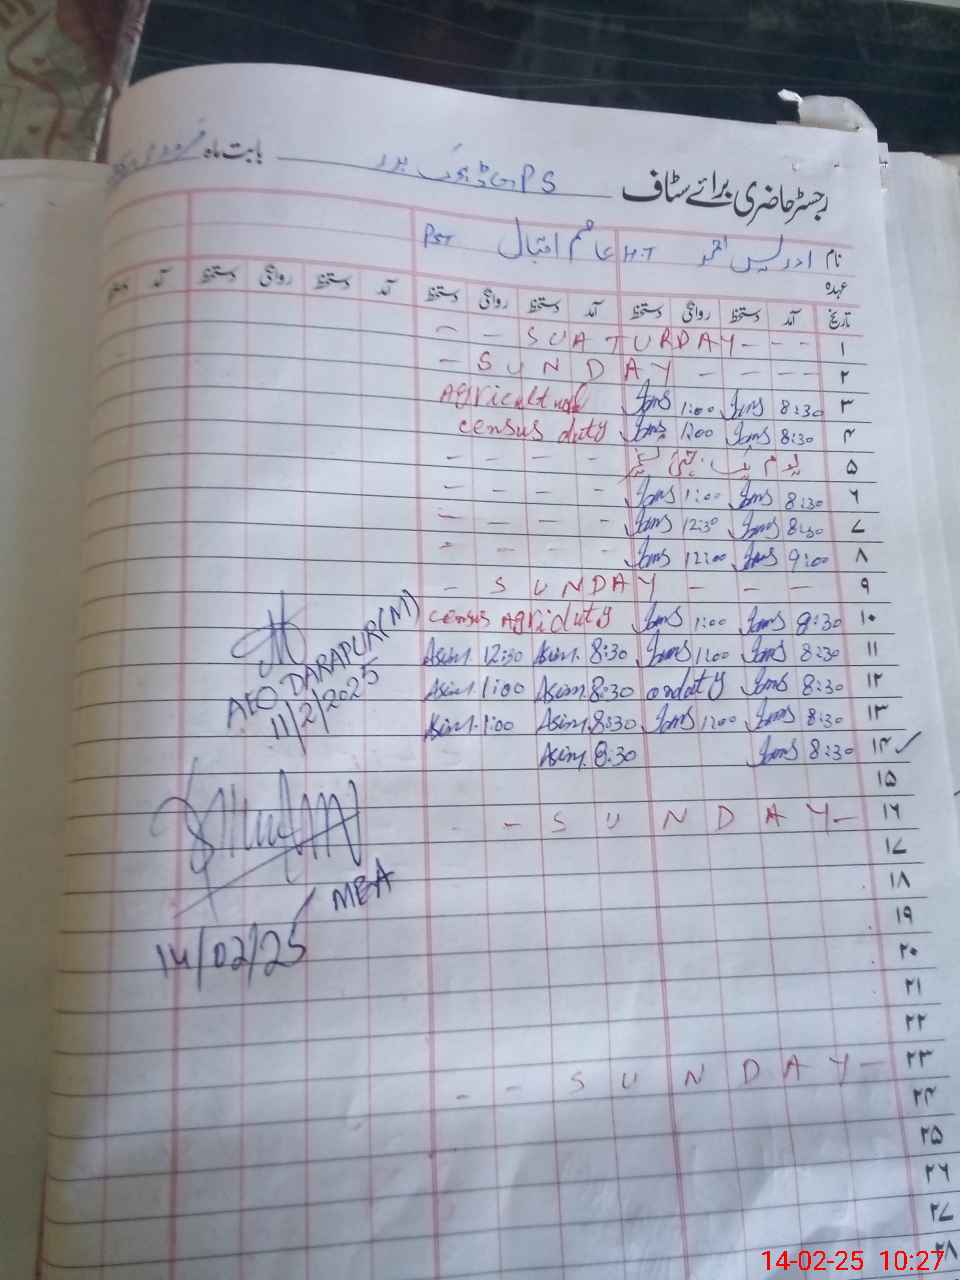 رجسٹر حاضری برائے سٹاف GPS بابت ماہ
نام ادریس احمد H.T عاصم اقبال PST
عہدہ
تاریخ آمد دستخط روانگی دستخط آمد دستخط روانگی دستخط آمد دستخط روانگی دستخط آمد دستخط
۱ - - - SUATURDAY - -
۲ - - - - SUNDAY -
۳ 8:30 1:00 Agricultural
۴ 8:30 1:00 census duty
۵ یوم - - - -
۶ 8:30 1:00 - - - -
۷ 8:30 12:30 - - - -
۸ 9:00 12:00 - - - -
۹ - - - SUNDAY -
۱۰ 8:30 1:00 census Agri duty
۱۱ 8:30 1:00 8:30 Asim. 12:30 Asim.
۱۲ 8:30 onduty 8:30 Asim. 1:00 Asim.
۱۳ 8:30 1:00 8:30 Asim. 1:00 Asim.
۱۴ 8:30 8:30 Asim.
۱۵
۱۶ - SUNDAY - -
۱۷
۱۸
۱۹
۲۰
۲۱
۲۲
۲۳ - SUNDAY - -
۲۴
۲۵
۲۶
۲۷
۲۸
AEO DARAPUR(M)
11/2/2025
MEA
14/02/25
14-02-25 10:27